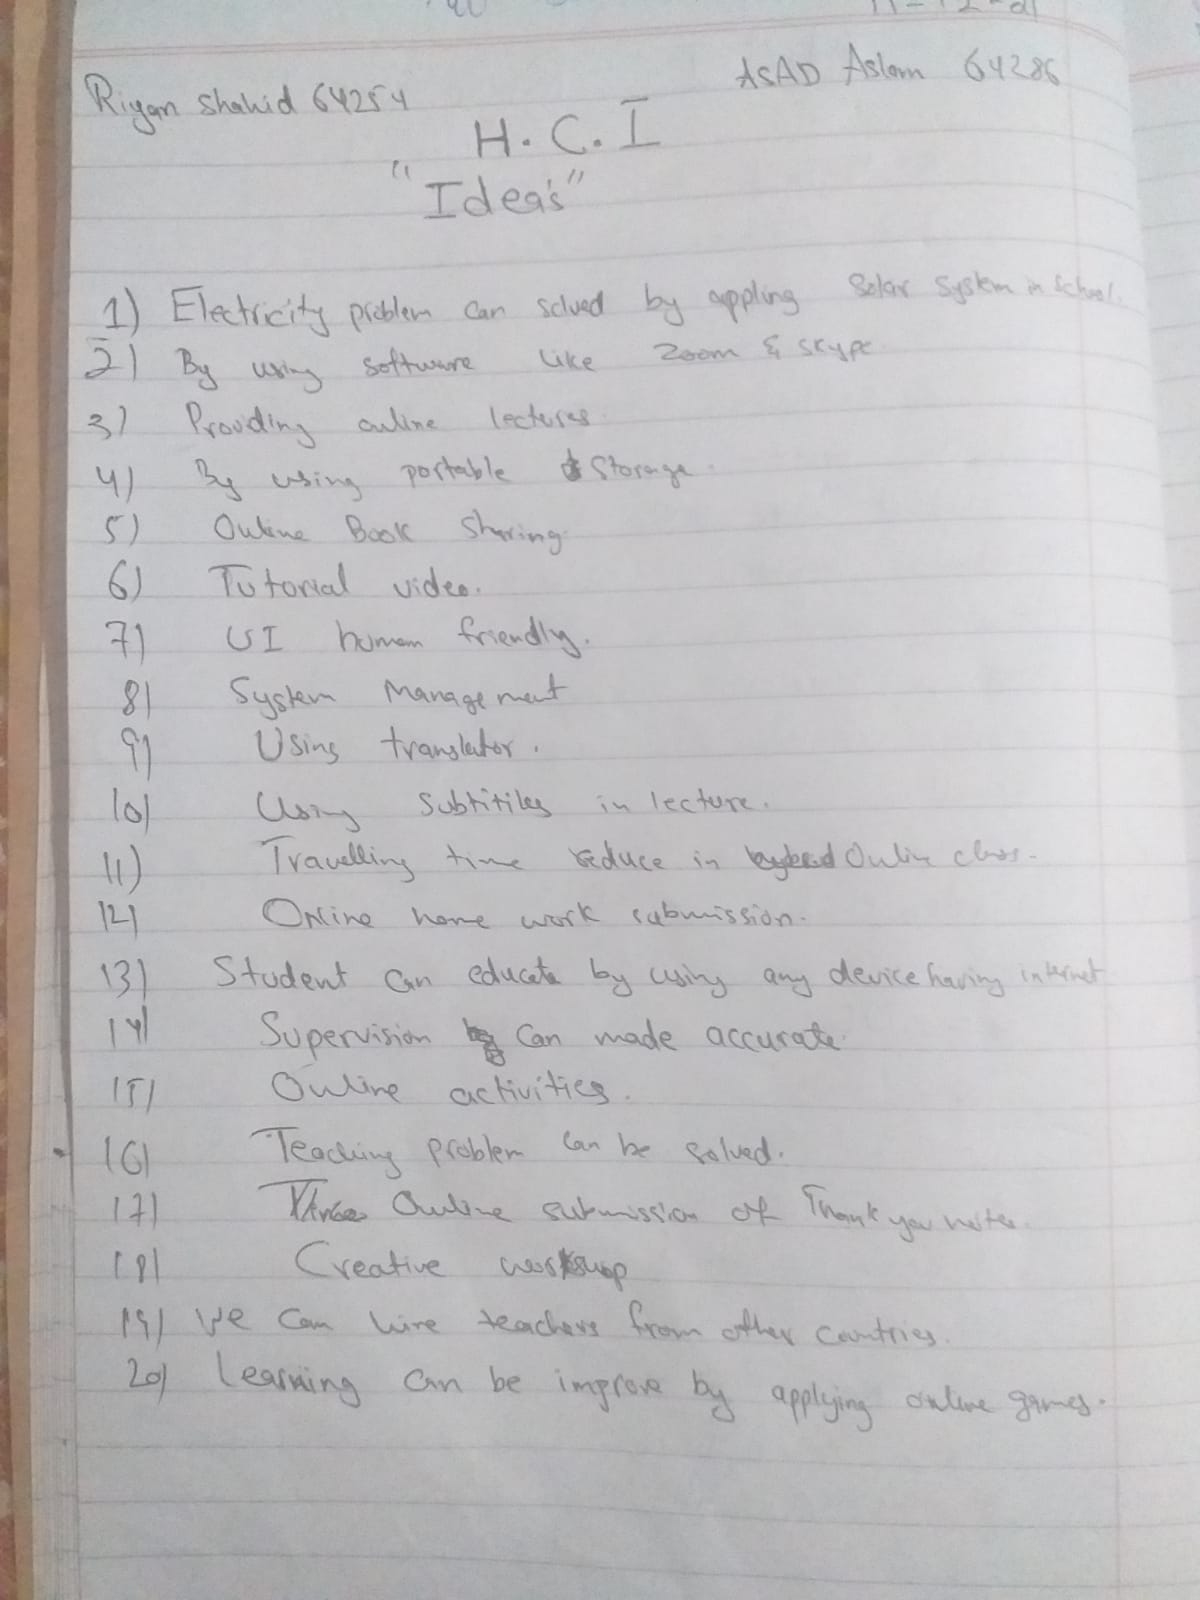 Riyan Shahid 64254
ASAD Aslam 64286
H.C.I
"Idea's"
1) Electricity problem can solved by appling Solar System in School.
2) By using software like Zoom & Skype
3) Providing online lectures.
4) By using portable Storage.
5) Online Book Sharing.
6) Tutorial video.
7) UI human friendly.
8) System Management
9) Using translator.
10) Using Subtitiles in lecture.
11) Travelling time reduce in Online class.
12) Online home work submission.
13) Student can educate by using any device having internet
14) Supervision can made accurate.
15) Online activities.
16) Teaching problem can be solved.
17) Online submission of Thank you notes.
18) Creative
19) We can hire teachers from other countries.
20) Learning can be improve by applying online games.